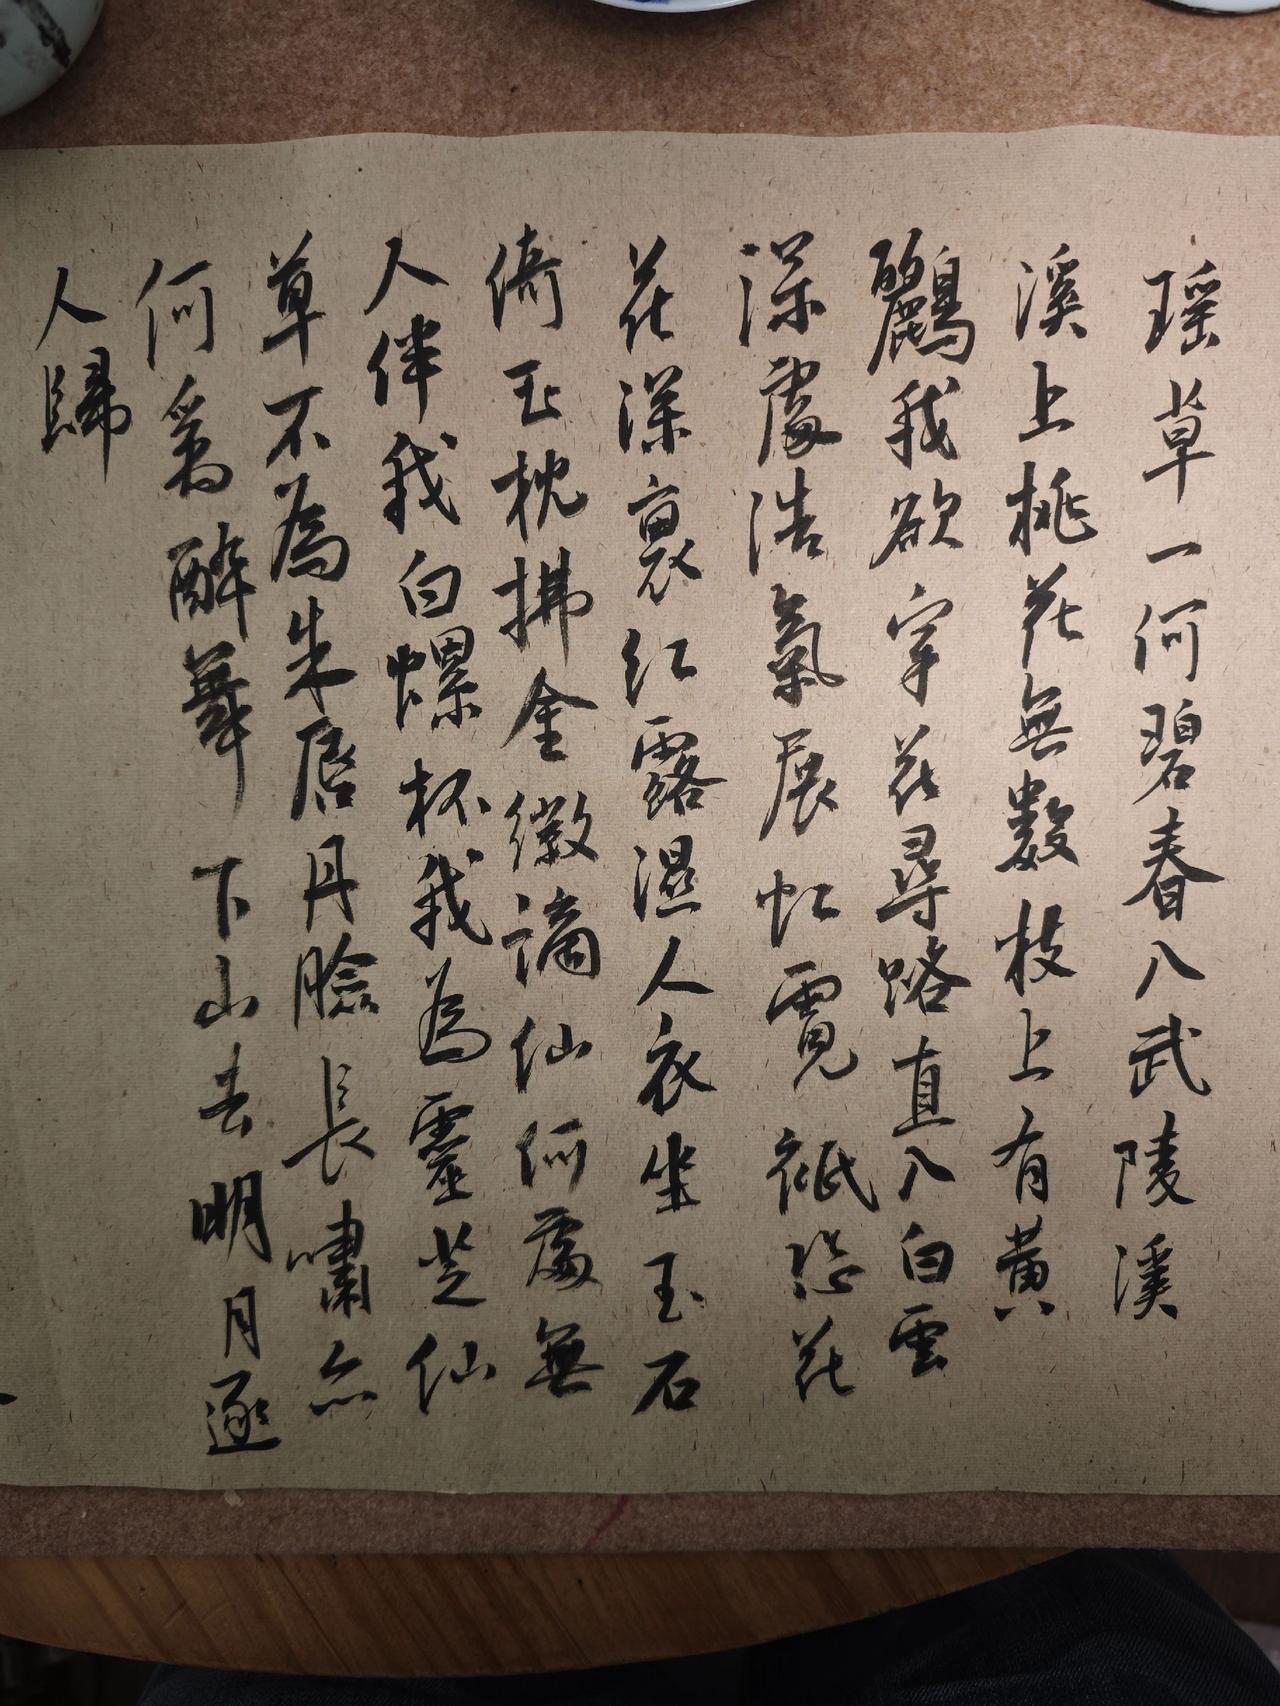 瑶草一何碧春入武陵溪
溪上桃花無數枝上有黄
鸝我欲穿花尋路直入白雲
深處浩氣展虹霓祇恐花
花深裏紅露濕人衣坐玉石
倚玉枕拂金徽謫仙何處無
人伴我白螺杯我為靈芝仙
草不為朱唇丹臉長嘯亦
何爲醉舞下山去明月逐
人歸